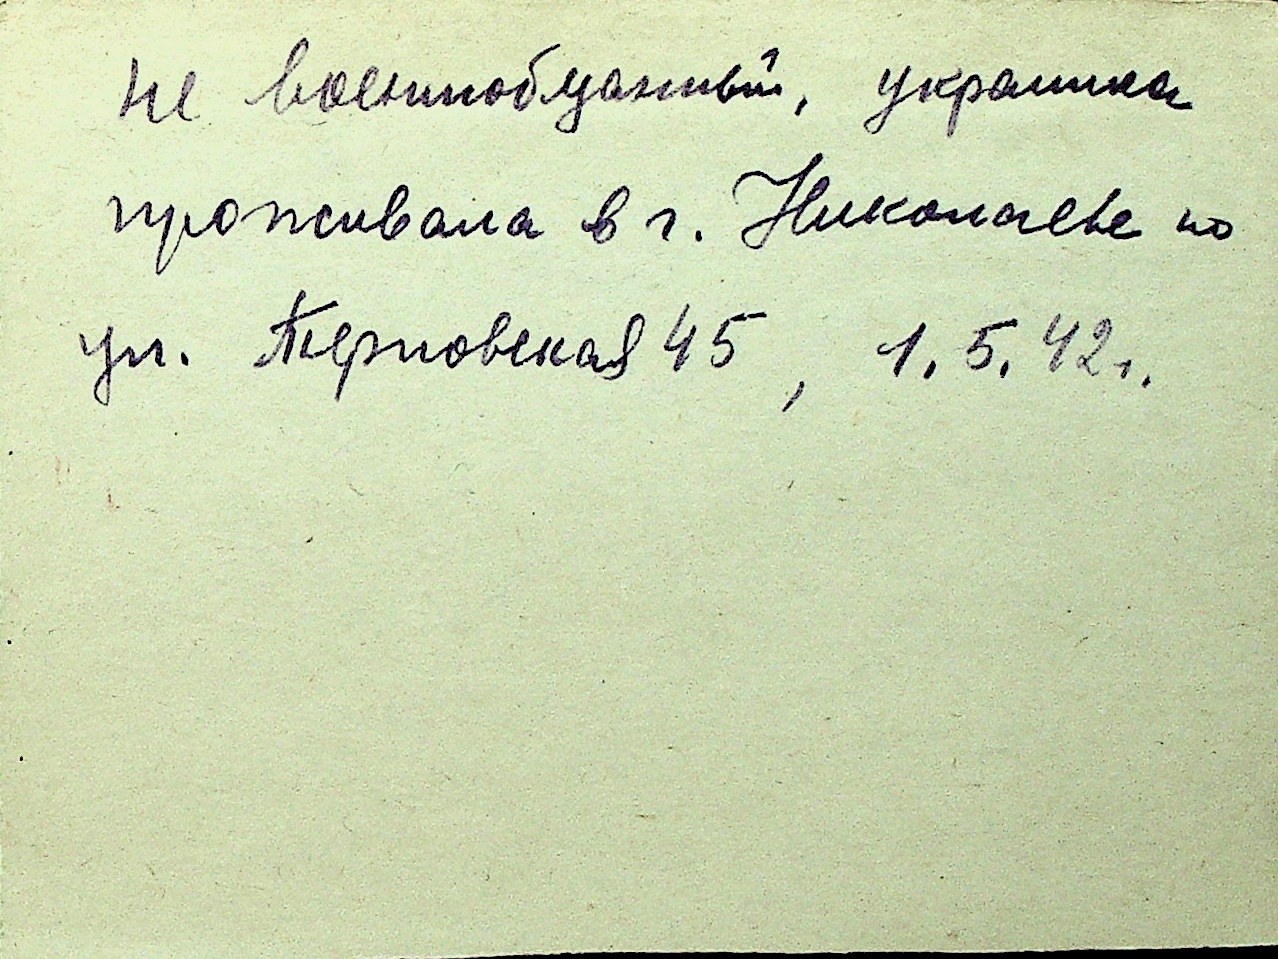 не военнообязанный, украинка
проживала в г. Николаеве по
ул. Терновская 45, 1.5.42г.